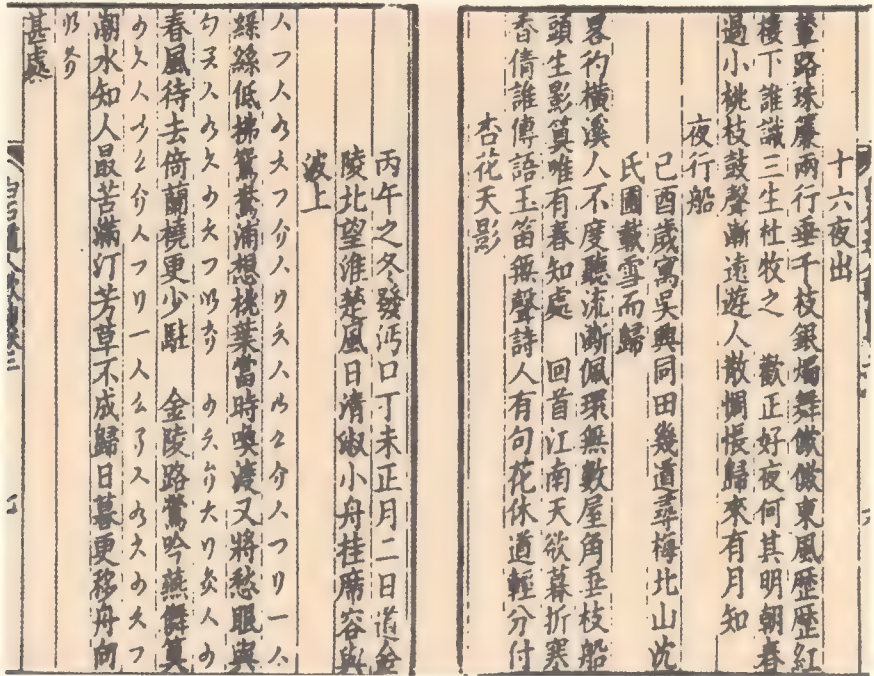 十六夜出
輦路珠簾兩行垂千枝銀燭舞僛僛東風歷歷紅
樓下誰識三生杜牧之　歡正好夜何其明朝春
過小桃枝鼓聲漸遠遊人散惆悵歸來有月知
夜行船
己酉歲寓吳興同田幾道尋梅北山沈
氏圃載雪而歸
畧彴橫溪人不度聽流澌佩環無數屋角垂枝船
頭生影算唯有春知處　回首江南天欲暮折寒
香倩誰傳語玉笛無聲詩人有句花休道輕分付
杏花天影
丙午之冬發沔口丁未正月二日道金
陵北望淮楚風日清淑小舟挂席容與
波上
綠絲低拂鴛鴦浦想桃葉當時喚渡又將愁眼與
春風待去倚蘭橈更少駐　金陵路鶯吟燕儛算
潮水知人最苦滿汀芳草不成歸日暮更移舟向
甚處